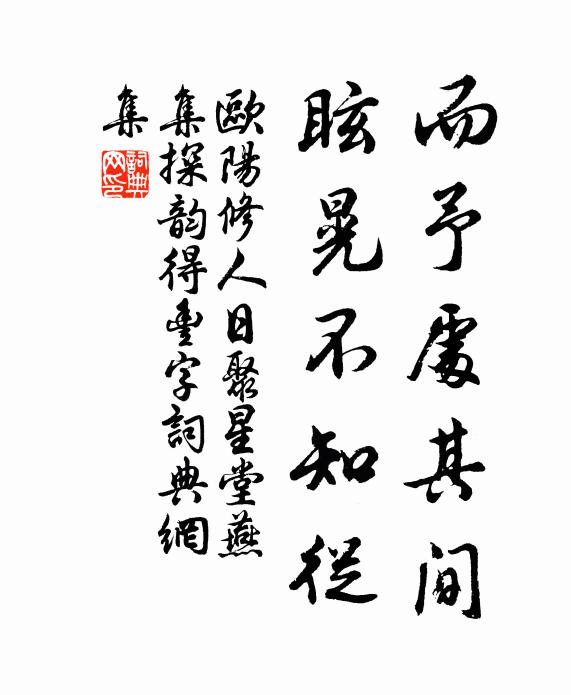 而予處其間
眩晃不知從
歐陽修人日聚星堂燕
集探韵得豐字詞典網
集
詞典
网印